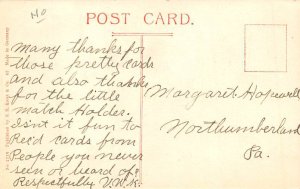 MO
POST CARD.
many thanks for
those pretty cards
and also thanks
for the little
match Holder.
Isn't it fun to
Rec'd cards from
People you never
seen or heard of.
Respectfully V.M.K.
Margaret Hopewell
Northumberland
Pa.